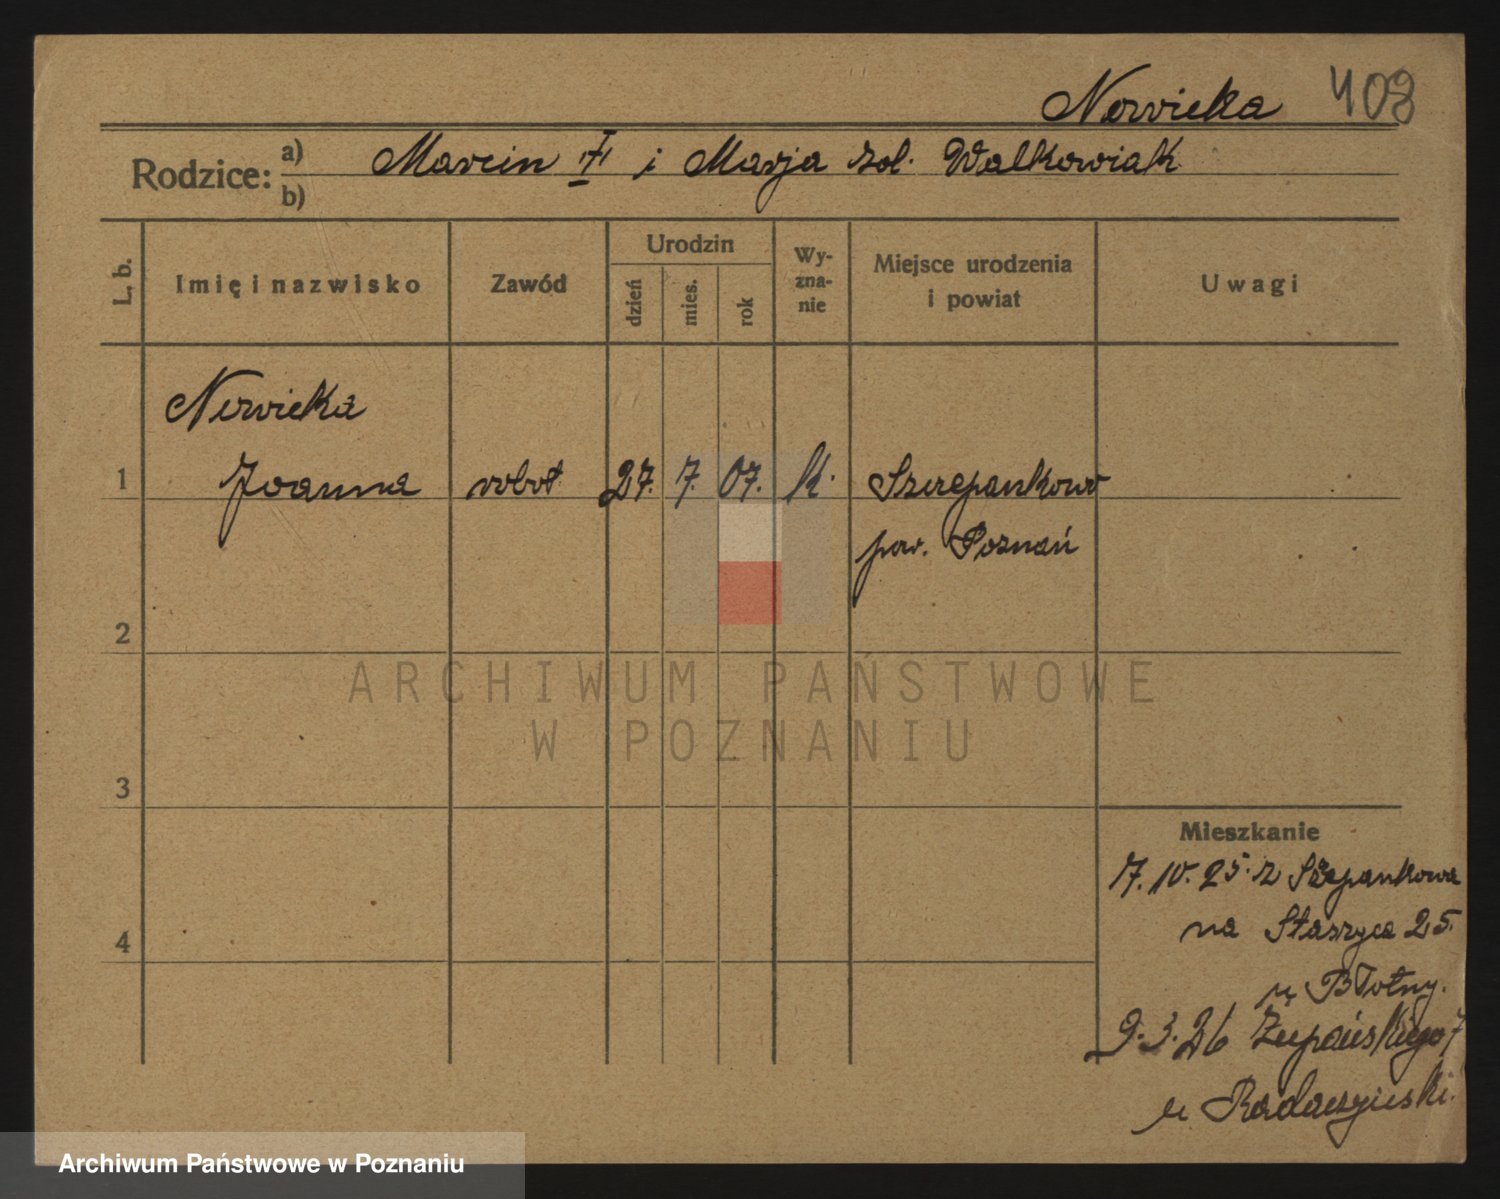 Nowicka 408
Rodzice: a) Marcin i Marja zol. Walkowiak
b)
L. b. Imię i nazwisko Zawód Urodzin dzień mies. rok Wy-zna-nie Miejsce urodzenia i powiat Uwagi
Nowicka
1 Joanna robot. 27. 7. 07. k. Szczepankowo
pow. Poznań
2
3
4
Mieszkanie
7. 10. 25. z Szczepankowa
na Staszyca 25.
u Błotny.
9. 3. 26 Żupańskiego 7
u.
ARCHIWUM PAŃSTWOWE
W POZNANIU
Archiwum Państwowe w Poznaniu